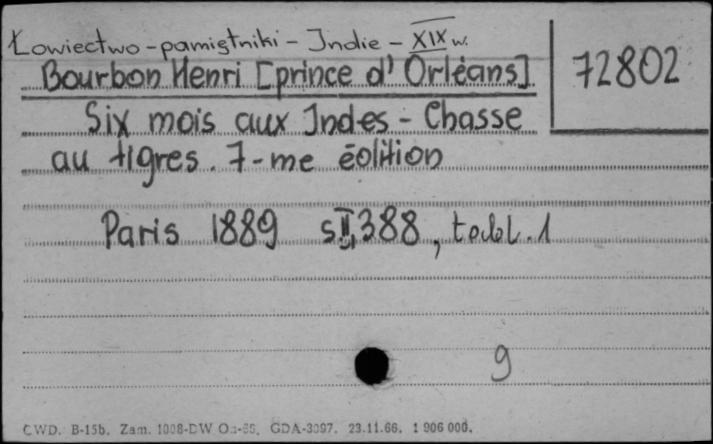 Łowiectwo - pamiętniki - Indie - XIX w.
Bourbon Henri [prince d'Orléans]
72802
Six mois aux Indes - Chasse
au tigres. 7-me édition
Paris 1889 s II, 388, tabl. 1
9
CWD. B-15b. Zam. 1008-DW GDA-3097. 23.11.66. 1 906 000.